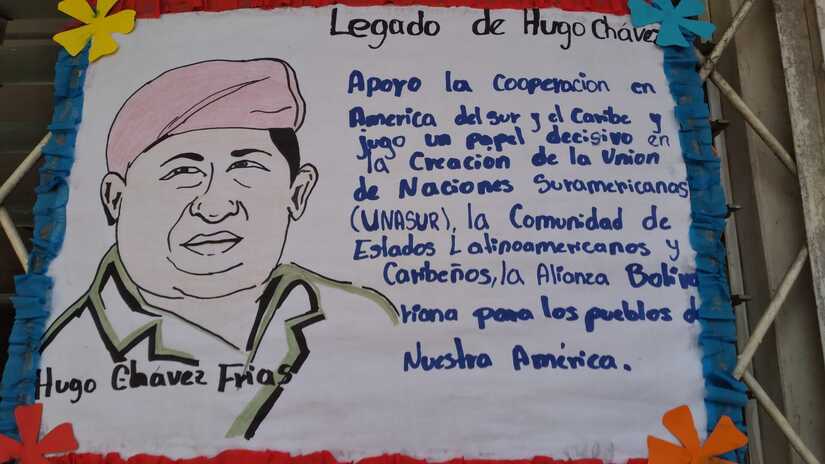 Legado de Hugo Chávez
Apoyo la cooperacion en
America del sur y el Caribe y
jugo un papel decisivo en
la Creacion de la Union
de Naciones Suramericanas
(UNASUR), la Comunidad de
Estados Latinoamericanos y
Caribeños, la Alianza Boliva
riana para los pueblos de
Nuestra América.
Hugo Chávez Frias